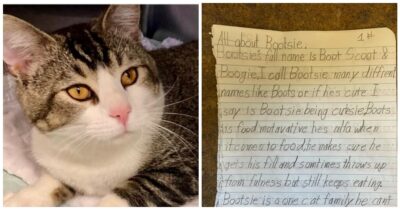 1st
All about Bootsie.
Bootsie's full name is Boot Scout &
Boogie. I call Bootsie many diffrent
names like Boots or if he's cute. I
say is Bootsie being cutesie. Boots
is food motavative hes alfa when
it comes to food, he makes cure he
gets his fill and somtimes throws up
from fulness but still keeps eating.
Bootsie is a one cat family he cant